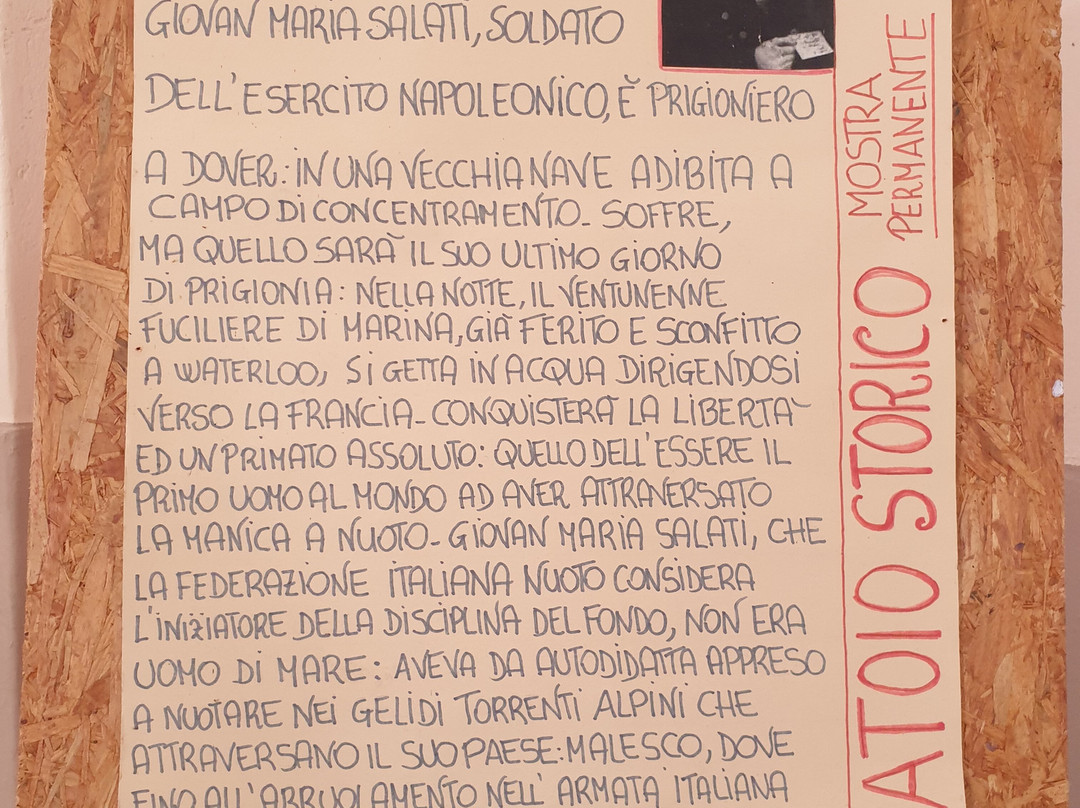 GIOVAN MARIA SALATI, SOLDATO
DELL'ESERCITO NAPOLEONICO, È PRIGIONIERO
A DOVER: IN UNA VECCHIA NAVE ADIBITA A
CAMPO DI CONCENTRAMENTO- SOFFRE,
MA QUELLO SARÀ IL SUO ULTIMO GIORNO
DI PRIGIONIA: NELLA NOTTE, IL VENTUNENNE
FUCILIERE DI MARINA, GIÀ FERITO E SCONFITTO
A WATERLOO, SI GETTA IN ACQUA DIRIGENDOSI
VERSO LA FRANCIA- CONQUISTERÀ LA LIBERTÀ
ED UN PRIMATO ASSOLUTO: QUELLO DELL'ESSERE IL
PRIMO UOMO AL MONDO AD AVER ATTRAVERSATO
LA MANICA A NUOTO- GIOVAN MARIA SALATI, CHE
LA FEDERAZIONE ITALIANA NUOTO CONSIDERA
L'INIZIATORE DELLA DISCIPLINA DEL FONDO, NON ERA
UOMO DI MARE: AVEVA DA AUTODIDATTA APPRESO
A NUOTARE NEI GELIDI TORRENTI ALPINI CHE
ATTRAVERSANO IL SUO PAESE: MALESCO, DOVE
FINO ALL'ARRUOLAMENTO NELL'ARMATA ITALIANA
ATOIO STORICO
MOSTRA
PERMANENTE